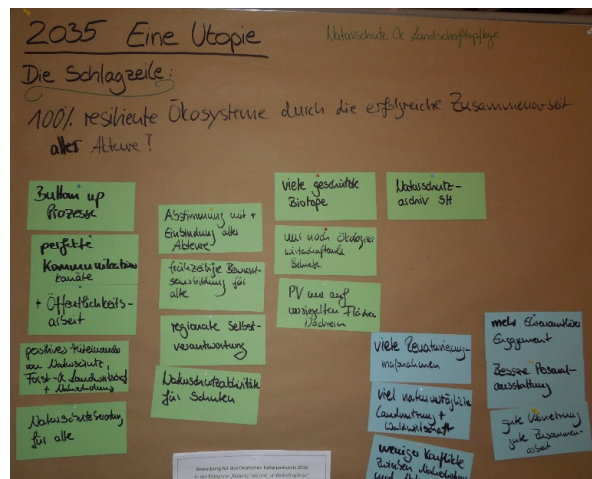 2035 Eine Utopie
Naturschutz & Landschaftspflege
Die Schlagzeile:
100% resiliente Ökosysteme durch die erfolgreiche Zusammenarbeit
aller Akteure!
Buttom up
Prozesse
perfekte
Kommunikations
kanäle
+ Öffentlichkeits-
arbeit
positives Miteinander
von Naturschutz,
Forst- & Landwirtschaft
+ Naherholung
Naturschutzberatung
für alle
Abstimmung mit +
Einbindung aller
Akteure
frühzeitige Bewusst-
seinsbildung für
alle
regionale Selbst-
verantwortung
Naturschutzaktivität
für Schulen
viele geschützte
Biotope
nur noch ökologisch
wirtschaftende
Betriebe
PV nur auf
versiegelten Flächen
Dächern
Naturschutz-
archiv SH
viele Renaturierung-
maßnahmen
viel naturverträgliche
Landnutzung +
Waldwirtschaft
weniger Konflikte
zwischen Naherholung
und
mehr Ehrenamtliches
Engagement
Bessere Personal-
ausstattung
gute Vernetzung
gute Zusammen-
arbeit
Bewerbung für den Deutschen